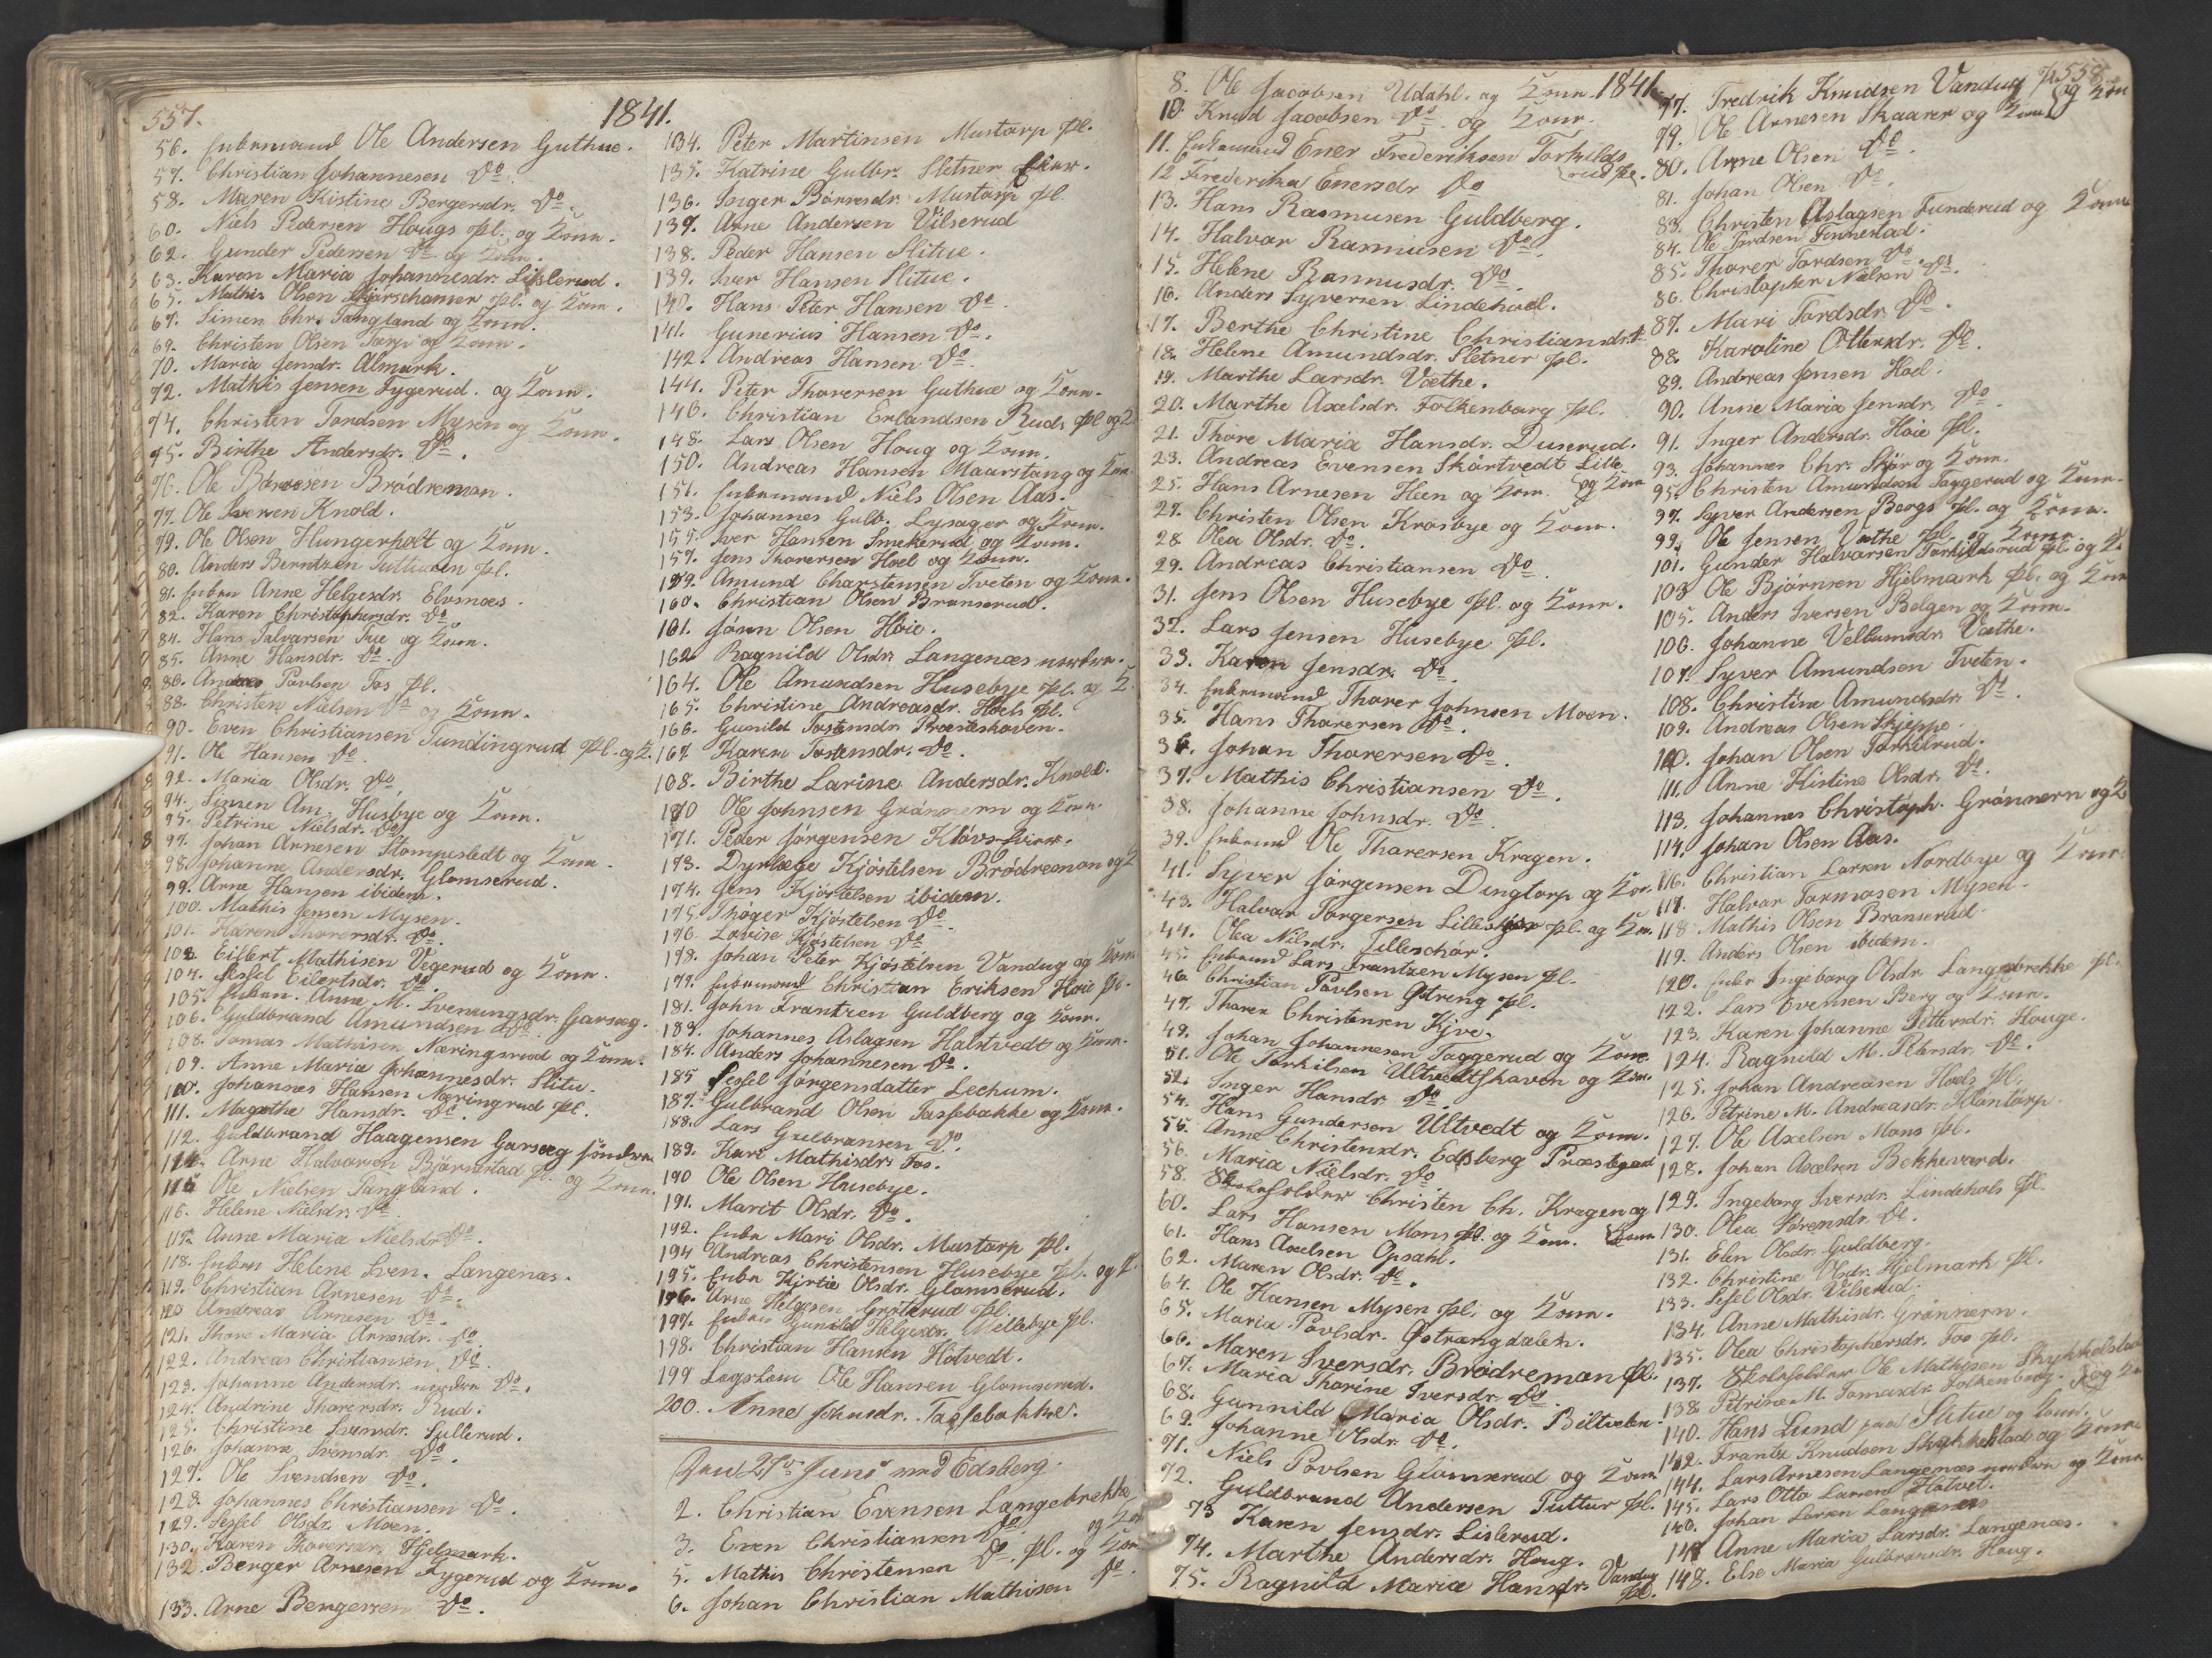 557.
1841.
56. Enkemand Ole Andersen Guthue.
57. Christian Johannesen Do.
58. Maren Kistine Bergersdr. Do.
60. Niels Pedersen Hougs pl. og Kone.
62. Gunder Pedersen Do og Kone.
63. Karen Maria Johannesdr. Lislerud.
65. Mathis Olsen pl. og Kone.
67. Simen Chr. Tangland og Kone.
69. Christen Olsen Torp og Kone.
70. Maria Jensdr. Almark.
72. Mathis Jensen Fygerud. og Kone.
74. Christen Tordsen Mysen og Kone.
75. Birthe Andersdr. Do.
76. Ole Brödreman.
77. Ole Iversen Knold.
79. Ole Olsen Hungerholt og Kone.
80. Anders Berntzen pl.
81. Enken Anne Helgesdr. Elvenæs.
82. Karen Christophersdr. Do
84. Hans Tue og Kone.
85. Anne Hansdr. Do.
86. Andreas Povlsen Fos pl.
88. Christen Nielsen Do og Kone.
90. Even Christiansen Tundingrud pl. og K.
91. Ole Hansen Do.
92. Maria Olsdr. Do
94. Simen Am. Husbye og Kone.
95. Petrine Nielsdr. Do
97. Johan Arnesen Stompestedt og Kone.
98. Johanne Andersdr. Glomserud.
99. Arne Hansen ibidem.
100. Mathis Jensen Mysen.
101. Karen Thorersdr. Do.
103. Eilert Mathisen Vegerud og Kone.
104. Sessel Eilertsdr. Do.
105. Enken. Anne M. Svenungsdr. Garseg.
106. Guldbrand Amundsen Do
108. Tomas Mathisen Næringsrud og Kone.
109. Anne Maria Johannesdr. Slitu.
110. Johannes Hansen Næringrud pl.
111. Magrethe Hansdr. Do.
112. Guldbrand Haagensen Garseg söndre
114. Arne Halvorsen Björnstad pl. og Kone.
115 Ole Nielsen Tangland.
116. Helene Nielsdr. Do
117. Anne Maria Nielsdr. Do.
118. Enken Helene Sven. Langenæs.
119. Christian Arnesen Do.
120 Andreas Arnesen Do.
121. Thore Maria Arnesdr. Do
122. Andreas Christiansen Do.
123. Johanne Andersdr. nordre Do.
124. Andrine Thorersdr. Rud.
125. Christine Svensdr. Sullerud.
126. Johanne Svensdr. Do
127. Ole Svendsen Do.
128. Johannes Christiansen Do.
129. Sessel Olsdr. Moen.
130. Karen Thorersdr. Hjelmark.
132. Berger Arnesen Fygerud og Kone.
133. Arne Bergersen Do.
134. Peter Martinsen Mustorp pl.
135. Katrine Gulbr. Sletner Eier.
136. Inger Börresdr. Mustorp pl.
137. Arne Andersen Vilserud
138. Peder Hansen Slitue.
139. Iver Hansen Slitue.
140. Hans Peter Hansen Do.
141. Gunerius Hansen Do.
142. Andreas Hansen Do.
144. Peter Thorersen Guthue og Kone.
146. Christian Erlandsen Ruds pl og K
148. Lars Olsen Houg og Kone.
150. Andreas Hansen Maarstang og Kone
151. Enkemand Niels Olsen Aas.
153. Johannes Gulb. Lysager og Kone.
155. Iver Hansen Smekerud og Kone.
157. Jens Thorersen Hoel og Kone.
159. Amund Charstensen Tveten og Kone.
160. Christian Olsen Branserud.
161. Jörn Olsen Höie.
162 Ragnild Olsdr. Langenæs nordre.
164. Ole Amundsen Husebye pl. og K.
165. Christine Andreasdr. Hoels pl.
166. Gunild Tostensdr. Præsteskoven.
167. Karen Tostensdr. Do.
168. Birthe Larine Andersdr. Knold.
170 Ole Johnsen Grönnern og Kone.
171. Peder Jörgensen
173. Dyrlæge Kjöstelsen Brödremon og K
174. Jens Kjöstelsen ibidem.
175. Thöger Kjöstelsen Do.
176. Lovise Kjöstelsen Do
178. Johan Peter Kjöstelsen Vandug og Kone
179. Enkemand Christian Eriksen Höie pl.
181. John Frantzen Guldberg og Kone.
183. Johannes Aslagsen Halstvedt og Kone.
184. Anders Johannesen Do.
185 Sessel Jörgensdatter Lechum.
187. Gulbrand Olsen Tassebakke og Kone.
188. Lars Gulbransen Do
189. Kari Mathisdr. Fos.
190 Ole Olsen Husebye.
191. Marit Olsdr. Do.
192. Enke Mari Olsdr. Mustorp pl.
194 Andreas Christensen Husebye pl. og K
195. Enke Kjrtie Olsdr. Glomserud.
196. Arne Helgesen pl.
197. Enken Gunild Helgesdr. pl.
198. Christian Hansen Hotvedt.
199 Ole Hansen Glomserud.
200. Anne Johnsdr. Tassebakke.
Den 27de Juni ved Edsberg.
2. Christian Evensen Langebrekke
og Kone
3. Even Christiansen Do
5. Mathis Christensen Do. pl. og Kone
6. Johan Christian Mathisen Do.
1841
558.
8. Ole Jacobsen Udahl. og Kone.
10. Knud Jacobsen Do og Kone.
11. Enkemand Ener Frederiksen Torkilds
rud pl.
12 Frederika Enersdr Do
13. Hans Rasmusen Guldberg.
14. Halvor Rasmusen Do.
15. Helene Rasmusdr. Do
16. Anders Syversen Lindehoel.
17. Berthe Christine Christiansdr.
18. Helene Amundsdr. Sletner pl.
19. Marthe Larsdr. Væthe.
20. Marthe Axelsdr. Folkenborg pl.
21. Thore Maria Hansdr. Duserud.
23. Andreas Evensen Skörtvedt Lille
og Kone
25. Hans Arnesen Heen og Kone.
27. Christen Olsen Krosbye og Kone.
28 Olea Olsdr. Do.
29. Andreas Christiansen Do
31. Jens Olsen Husebye pl. og Kone.
32. Lars Jensen Husebye pl.
33. Karen Jensdr. Do.
34. Enkemand Thorer Johnsen Moen.
35. Hans Thorersen Do.
36. Johan Thorersen Do.
37. Mathis Christiansen Do.
38. Johanne Johnsdr. Do
39. Enkemand Ole Thorersen Kragen.
41. Syver Jörgensen Dingtorp og Kone
43. Halvor Torgersen pl. og Kone.
44. Olea Nilsdr.
45. Enkemand Lars Frantzen Mysen pl.
46. Christian Povlsen Östreng pl.
47. Thorer Christensen Kjve.
49. Johan Johannesen Taggerud og Kone
51. Ole Torkilsen Ultvedtskaven og Kone.
52. Inger Hansdr. Do.
54. Hans Gundersen Ultvedt og Kone.
55. Anne Christensdr. Edsberg Præstegad
56. Maria Nielsdr. Do
58. Skoleholder Christen Ch. Kragen og
Kone
60. Lars Hansen Mons pl. og Kone.
61. Hans Axelsen Opsahl.
62. Maren Olsdr. Do.
64. Ole Hansen Mysen pl. og Kone.
65. Maria Povlsdr. Östrængdalen.
66. Maren Iversdr. Brödreman pl.
67. Maria Thorine Iversdr. Do.
68. Gunnild Maria Olsdr.
69. Johanne Olsdr. Do.
71. Niels Povlsen Glomserud og Kone
72. Guldbrand Andersen Tuttur pl.
73 Karen Jensdr. Lislerud.
74. Marthe Andersdr. Houg.
75. Ragnild Maria Hansdr. Vandug
pl.
77. Fredrik Knudsen Vandug pl. og Kone
79. Ole Arnesen Skaarer og Kone
80. Arne Olsen Do.
81. Johan Olsen Do.
83. Christen Aslagsen Funderud og Kone
84. Ole Tordsen Finnestad.
85. Thorer Tordsen Do
86. Christopher Nielsen Do.
87. Mari Tordsdr. Do.
88. Karoline Ottersdr. Do.
89. Andreas Jensen Hoel.
90. Anne Maria Jensdr. Do
91. Inger Andersdr. Höie pl.
93. Johannes Chr. Skör og Kone.
95. Christen Amundsen Taggerud og Kone.
97. Syver Andersen Bergs pl. og Kone.
99. Ole Jensen Væthe pl. og Kone
101. Gunder Halvorsen Torkildsrud pl. og K.
103 Ole Björnsen Hjelmark pl. og Kone
105. Anders Iversen Bölgen og Kone.
106. Johanne Vellumsdr. Væthe.
107. Syver Amundsen Tveten.
108. Christine Amundsdr. Do.
109. Andreas Olsen Skjeppe.
110. Johan Olsen Torkilrud.
111. Anne Kistine Olsdr. Do.
113. Johannes Christoph. Grönnern og K
114. Johan Olsen Aas.
116. Christian Larsen Nordbye og Kone.
117. Halvor Tormosen Mysen.
118 Mathis Olsen Branserud.
119. Anders Olsen ibidem.
120. Enke Ingeborg Olsdr. Langebrekke pl.
122. Lars Evensen Berg og Kone.
123. Karen Johanne Pettersdr. Houge.
124. Ragnild M. Petersdr. Do.
125. Johan Andreasen Hoels pl.
126. Petrine M. Andreasdr. Klontorp.
127. Ole Axelsen Mons pl.
128. Johan Axelsen Bekkevard.
129. Ingeborg Iversdr. Lindehols pl.
130. Olea Sörensdr. Do.
131. Elen Olsdr. Guldberg.
132. Christine Olsdr. Hjelmark pl.
133. Sesel Olsdr. Vilserud.
134. Anne Mathisdr. Grönnern.
135. Olea Christophersdr. Fos pl.
137. Skoleholder Ole Mathisen
og Kone
138. Petrine M. Tomasdr. Folkenborg.
140. Hans Lund paa Slitue og Kone.
142. Frantz Knudsen Skykkelstad og Kone
144. Lars Arnesen Langenæs nordre og Kone
145. Lars Otto Larsen Hotvet.
146. Johan Larsen Langenæs
147 Anne Maria Larsdr. Langenæs.
148. Else Maria Gulbransdr. Houg.